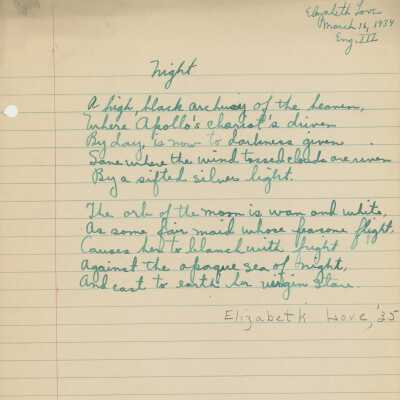 Elizabeth Love
March 16, 1934
Eng. III
Night
A high, black archway of the heaven,
Where Apollo's chariot's driven
By day, is now to darkness given
Save where the wind tossed clouds are riven
By a sifted silver light.
The orb of the moon is wan and white,
As some fair maid whose fearsome flight,
Causes her to blanch with fright
Against the opaque sea of night,
And cast to earth her virgin stare.
Elizabeth Love, '35